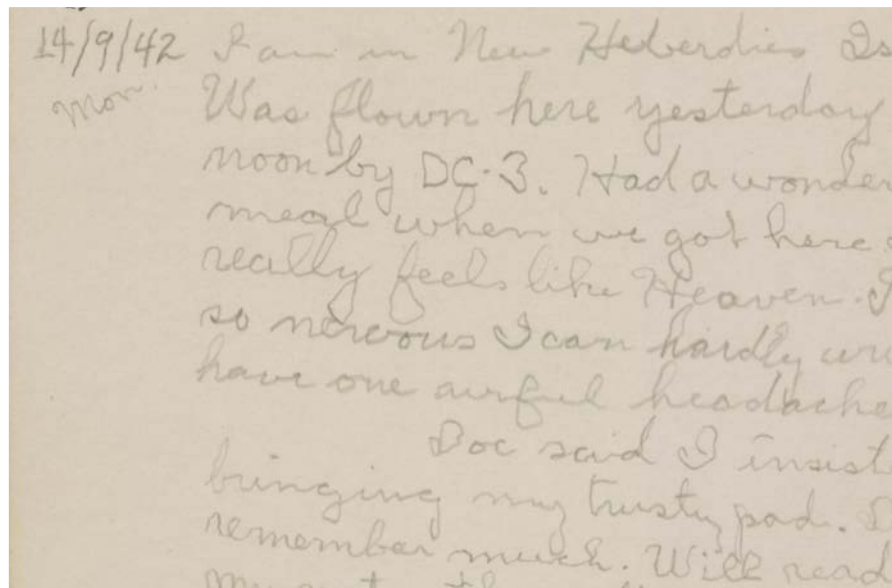 14/9/42 I am in New Heberdies Is
Mon. Was flown here yesterday
noon by DC-3. Had a wonder
meal when we got here
really feels like Heaven. I
so nervous I can hardly wri
have one awful headache
Doc said I insist
bringing my trusty pad. I
remember much. Will read